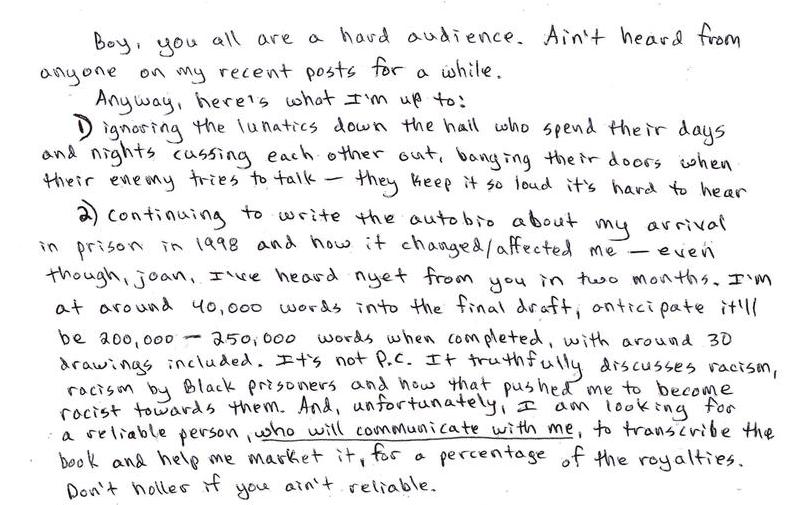 Boy, you all are a hard audience. Ain't heard from
anyone on my recent posts for a while.
Anyway, here's what I'm up to:
1) ignoring the lunatics down the hall who spend their days
and nights cussing each other out, banging their doors when
their enemy tries to talk — they keep it so loud it's hard to hear
2) continuing to write the autobio about my arrival
in prison in 1998 and how it changed/affected me — even
though, joan, I've heard nyet from you in two months. I'm
at around 40,000 words into the final draft, anticipate it'll
be 200,000 - 250,000 words when completed, with around 30
drawings included. It's not P.C. It truthfully discusses racism,
racism by Black prisoners and how that pushed me to become
racist towards them. And, unfortunately, I am looking for
a reliable person, who will communicate with me, to transcribe the
book and help me market it, for a percentage of the royalties.
Don't holler if you ain't reliable.